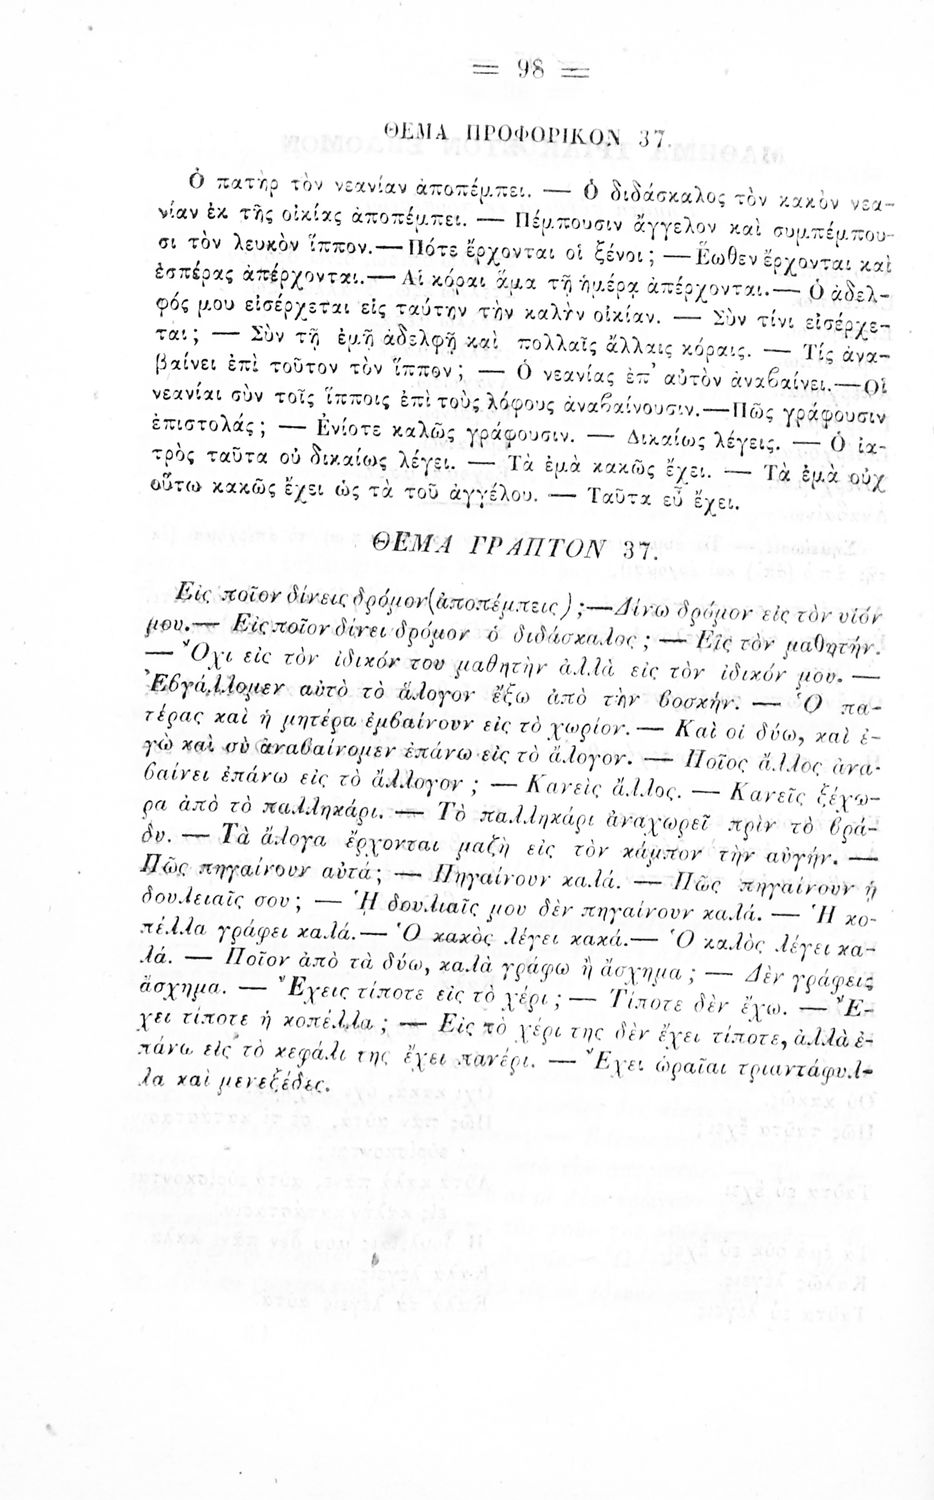 = 98 =
ΘΕΜΑ ΠΡΟΦΟΡΙΚΟΝ 37.
Ὁ πατὴρ τὸν νεανίαν ἀποπέμπει. — Ὁ διδάσκαλος τὸν κακὸν νεα-
νίαν ἐκ τῆς οἰκίας ἀποπέμπει. — Πέμπουσιν ἄγγελον καὶ συμπέμπου-
σι τὸν λευκὸν ἵππον.— Πότε ἔρχονται οἱ ξένοι; — Ἕωθεν ἔρχονται καὶ
ἑσπέρας ἀπέρχονται.— Αἱ κόραι ἅμα τῇ ἡμέρᾳ ἀπέρχονται.— Ὁ ἀδελ-
φός μου εἰσέρχεται εἰς ταύτην τὴν καλὴν οἰκίαν. — Σὺν τίνι εἰσέρχε-
ται; — Σὺν τῇ ἐμῇ ἀδελφῇ καὶ πολλαῖς ἄλλαις κόραις. — Τίς ἀνα-
βαίνει ἐπὶ τοῦτον τὸν ἵππον; — Ὁ νεανίας ἐπ' αὐτὸν ἀναβαίνει.— Οἱ
νεανίαι σὺν τοῖς ἵπποις ἐπὶ τοὺς λόφους ἀναβαίνουσιν.— Πῶς γράφουσιν
ἐπιστολάς; — Ἐνίοτε καλῶς γράφουσιν. — Δικαίως λέγεις. — Ὁ ἰα-
τρὸς ταῦτα οὐ δικαίως λέγει. — Τὰ ἐμὰ κακῶς ἔχει. — Τὰ ἐμὰ οὐχ
οὕτω κακῶς ἔχει ὡς τὰ τοῦ ἀγγέλου. — Ταῦτα εὖ ἔχει.
ΘΕΜΑ ΓΡΑΠΤΟΝ 37.
Εἰς ποῖον δίνεις δρόμον (ἀποπέμπεις) ;— Δίνω δρόμον εἰς τὸν υἱόν
μου.— Εἰς ποῖον δίνει δρόμον ὁ διδάσκαλος ; — Εἰς τὸν μαθητήν.
— Ὄχι εἰς τὸν ἰδικόν του μαθητὴν ἀλλὰ εἰς τὸν ἰδικόν μου. —
Ἐβγάλλομεν αὐτὸ τὸ ἄλογον ἔξω ἀπὸ τὴν βοσκήν. — Ὁ πα-
τέρας καὶ ἡ μητέρα ἐμβαίνουν εἰς τὸ χωρίον. — Καὶ οἱ δύω, καὶ ἐ-
γὼ καὶ σὺ ἀναβαίνομεν ἐπάνω εἰς τὸ ἄλογον. — Ποῖος ἄλλος ἀνα-
βαίνει ἐπάνω εἰς τὸ ἄλλογον ; — Κανεὶς ἄλλος. — Κανεῖς ξέχω-
ρα ἀπὸ τὸ παλληκάρι. — Τὸ παλληκάρι ἀναχωρεῖ πρὶν τὸ βρά-
δυ. — Τὰ ἄλογα ἔρχονται μαζὴ εἰς τὸν κάμπον τὴν αὐγήν. —
Πῶς πηγαίνουν αὐτά; — Πηγαίνουν καλά. — Πῶς πηγαίνουν ᾑ
δουλειαῖς σου; — Ἡ δουλιαῖς μου δὲν πηγαίνουν καλά. — Ἡ κο-
πέλλα γράφει καλά.— Ὁ κακὸς λέγει κακά.— Ὁ καλὸς λέγει κα-
λά. — Ποῖον ἀπὸ τὰ δύω, καλὰ γράφω ἢ ἄσχημα ; — Δὲν γράφεις
ἄσχημα. — Ἔχεις τίποτε εἰς τὸ χέρι ; — Τίποτε δὲν ἔχω. — Ἔ-
χει τίποτε ἡ κοπέλλα ; — Εἰς τὸ χέρι της δὲν ἔχει τίποτε, ἀλλὰ ἐ-
πάνω εἰς τὸ κεφάλι της ἔχει πανέρι. — Ἔχει ὡραῖαι τριαντάφυλ-
λα καὶ μενεξέδες.